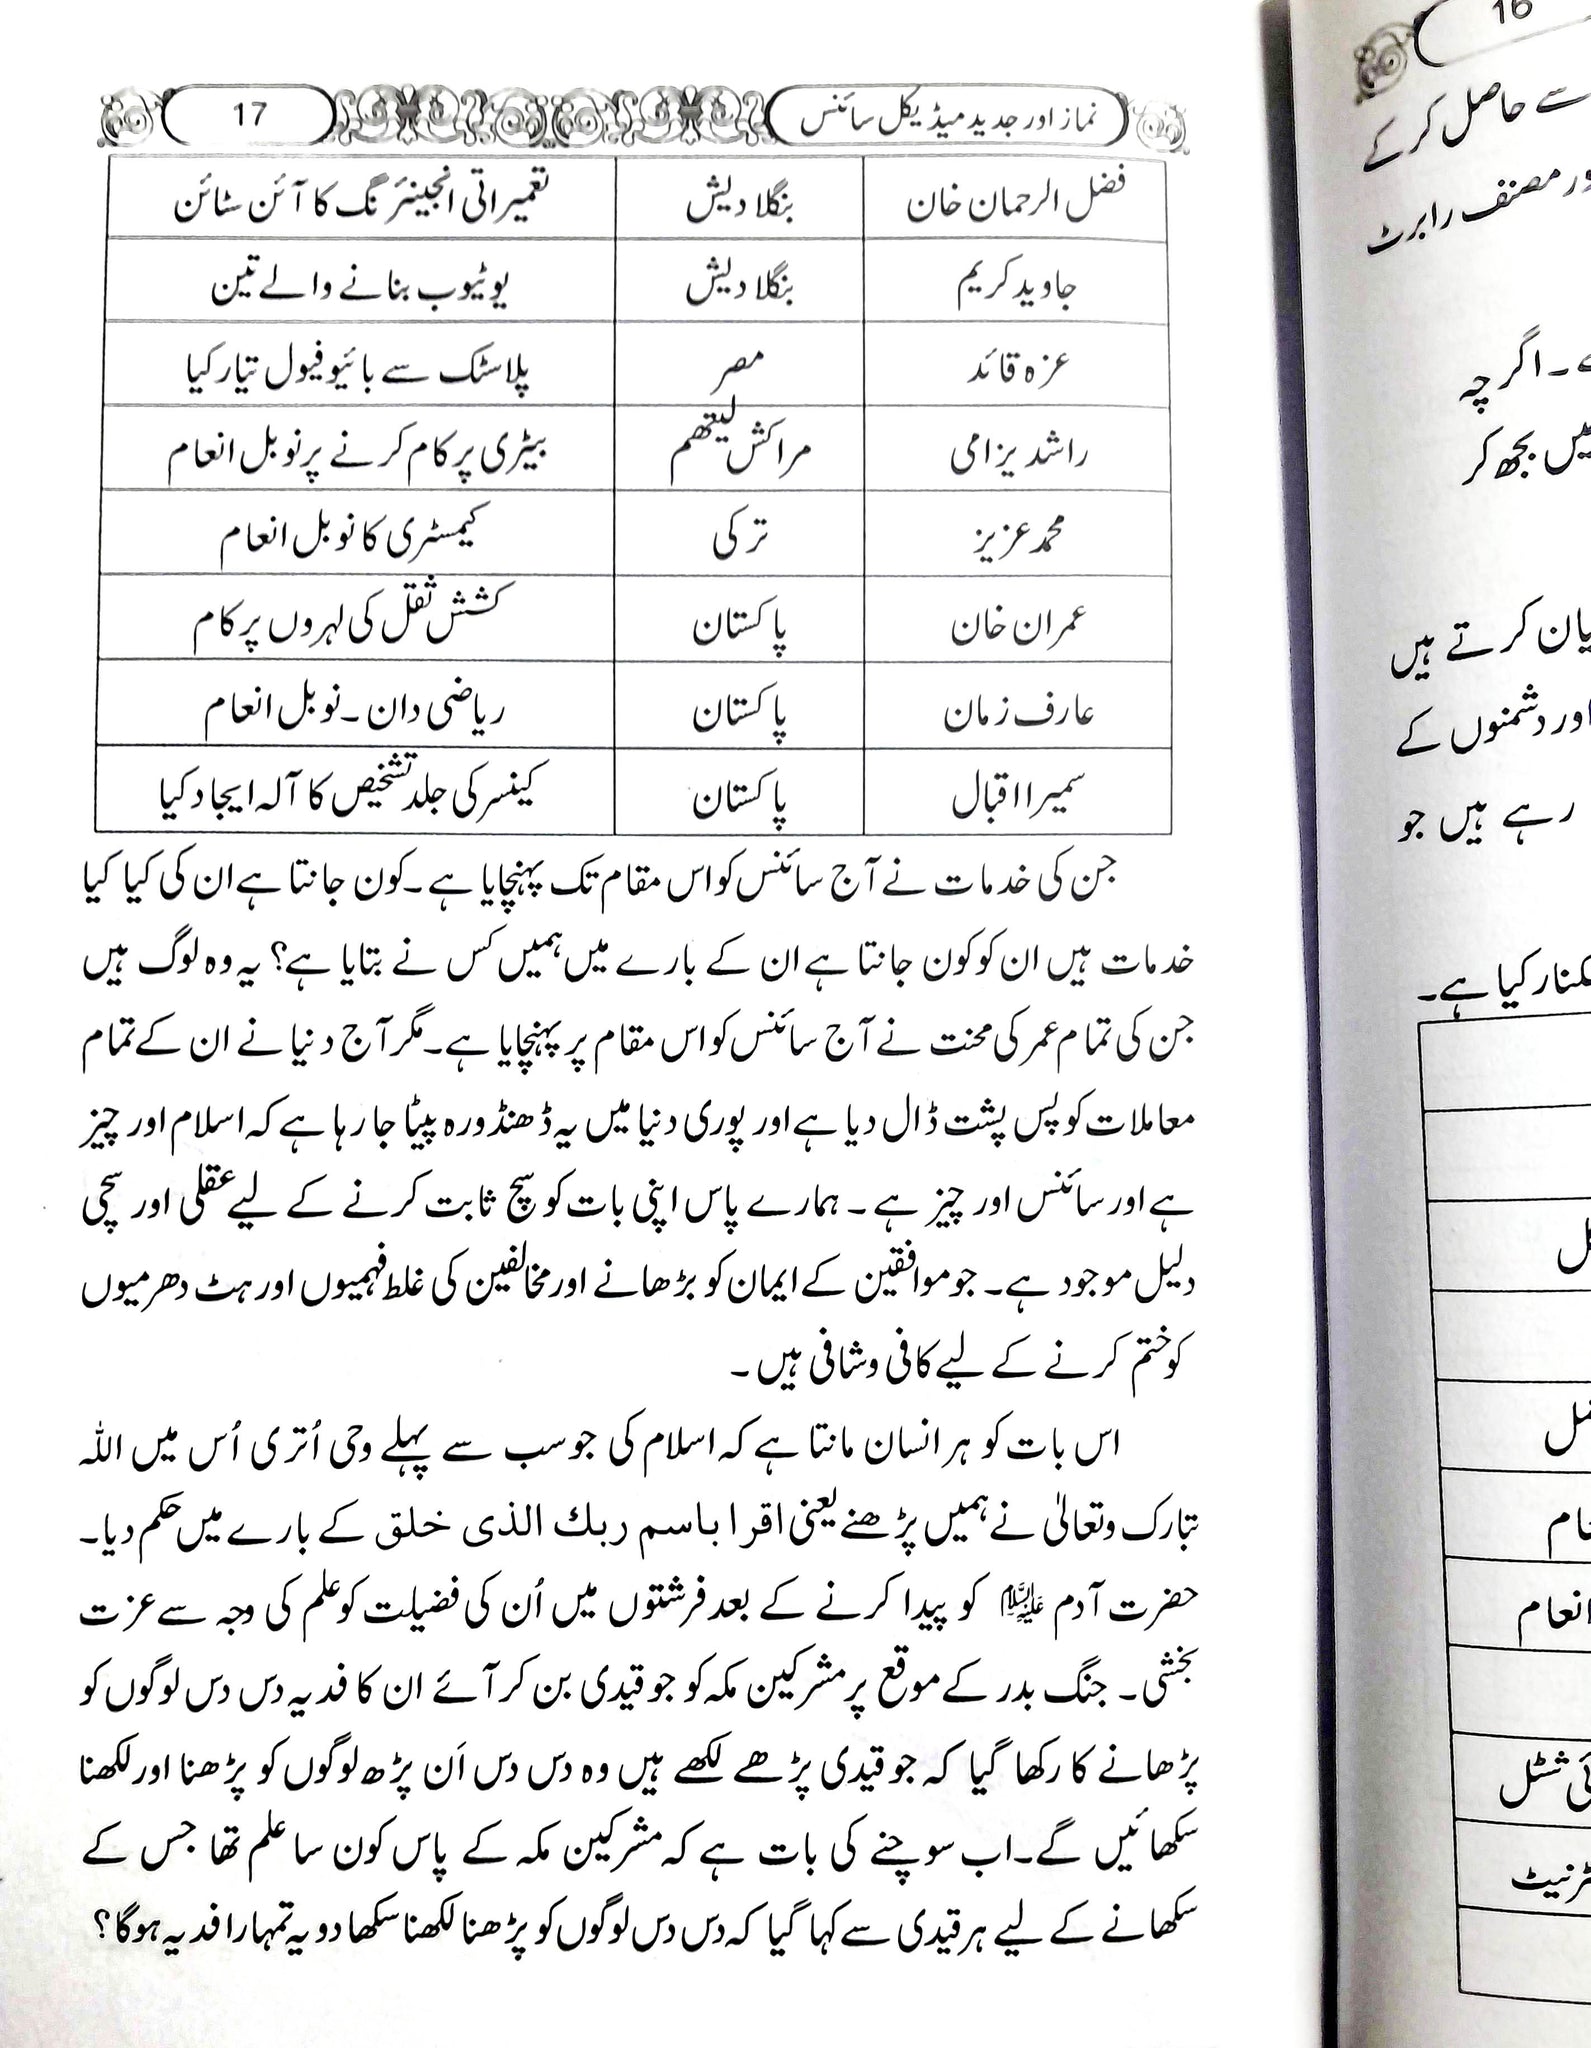 نماز اور جدید میڈیکل سائنس 17
فضل الرحمان خان بنگلا دیش تعمیراتی انجینئرنگ کا آئن سٹائن
جاوید کریم بنگلا دیش یوٹیوب بنانے والے تین
عزہ قائد مصر پلاسٹک سے بائیوفیول تیار کیا
راشد یزامی مراکش لیتھم بیٹری پر کام کرنے پر نوبل انعام
محمد عزیز ترکی کیمسٹری کا نوبل انعام
عمران خان پاکستان کشش ثقل کی لہروں پر کام
عارف زمان پاکستان ریاضی دان۔ نوبل انعام
سمیرا اقبال پاکستان کینسر کی جلد تشخیص کا آلہ ایجاد کیا
جن کی خدمات نے آج سائنس کو اس مقام تک پہنچایا ہے۔ کون جانتا ہے ان کی کیا کیا
خدمات ہیں ان کو کون جانتا ہے ان کے بارے میں ہمیں کس نے بتایا ہے؟ یہ وہ لوگ ہیں
جن کی تمام عمر کی محنت نے آج سائنس کو اس مقام پر پہنچایا ہے۔ مگر آج دنیا نے ان کے تمام
معاملات کو پس پشت ڈال دیا ہے اور پوری دنیا میں یہ ڈھنڈورہ پیٹا جا رہا ہے کہ اسلام اور چیز
ہے اور سائنس اور چیز ہے۔ ہمارے پاس اپنی بات کو سچ ثابت کرنے کے لیے عقلی اور سچی
دلیل موجود ہے۔ جو موافقین کے ایمان کو بڑھانے اور مخالفین کی غلط فہمیوں اور ہٹ دھرمیوں
کو ختم کرنے کے لیے کافی و شافی ہیں۔
اس بات کو ہر انسان مانتا ہے کہ اسلام کی جو سب سے پہلے وحی اُتری اُس میں اللہ
تبارک وتعالیٰ نے ہمیں پڑھنے یعنی اقرا باسم ربك الذی خلق کے بارے میں حکم دیا۔
حضرت آدم علیہ السلام کو پیدا کرنے کے بعد فرشتوں میں اُن کی فضیلت کو علم کی وجہ سے عزت
بخشی۔ جنگ بدر کے موقع پر مشرکین مکہ کو جو قیدی بن کر آئے ان کا فدیہ دس دس لوگوں کو
پڑھانے کا رکھا گیا کہ جو قیدی پڑھے لکھے ہیں وہ دس دس اَن پڑھ لوگوں کو پڑھنا اور لکھنا
سکھائیں گے۔ اب سوچنے کی بات ہے کہ مشرکین مکہ کے پاس کون سا علم تھا جس کے
سکھانے کے لیے ہر قیدی سے کہا گیا کہ دس دس لوگوں کو پڑھنا لکھنا سکھا دو یہ تمہارا فدیہ ہو گا؟
16
سے حاصل کر کے
مصنف رابرٹ
۔ اگرچہ
بجھ کر
کرتے ہیں
اور دشمنوں کے
رہے ہیں جو
کیا ہے۔
انعام